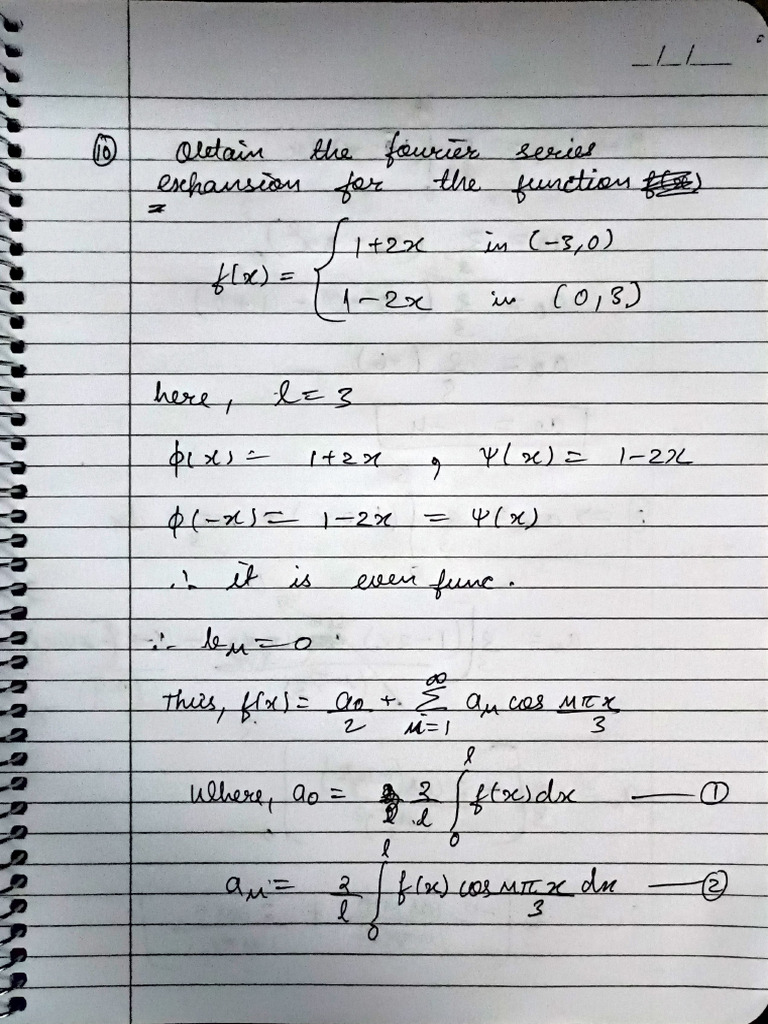 _/_/__
(10) Obtain the fourier series
expansion for the function
f(x) = { 1+2x in (-3,0)
1-2x in (0,3)
here, l = 3
φ(x) = 1+2x , Ψ(x) = 1-2x
φ(-x) = 1-2x = Ψ(x)
∴ it is even func.
∴ bn = 0
Thus, f(x) = a0/2 + ∞Σn=1 an cos nπx/3
Where, a0 = 2/l ∫0^l f(x) dx —— (1)
an = 2/l ∫0^l f(x) cos nπx/3 dx —— (2)